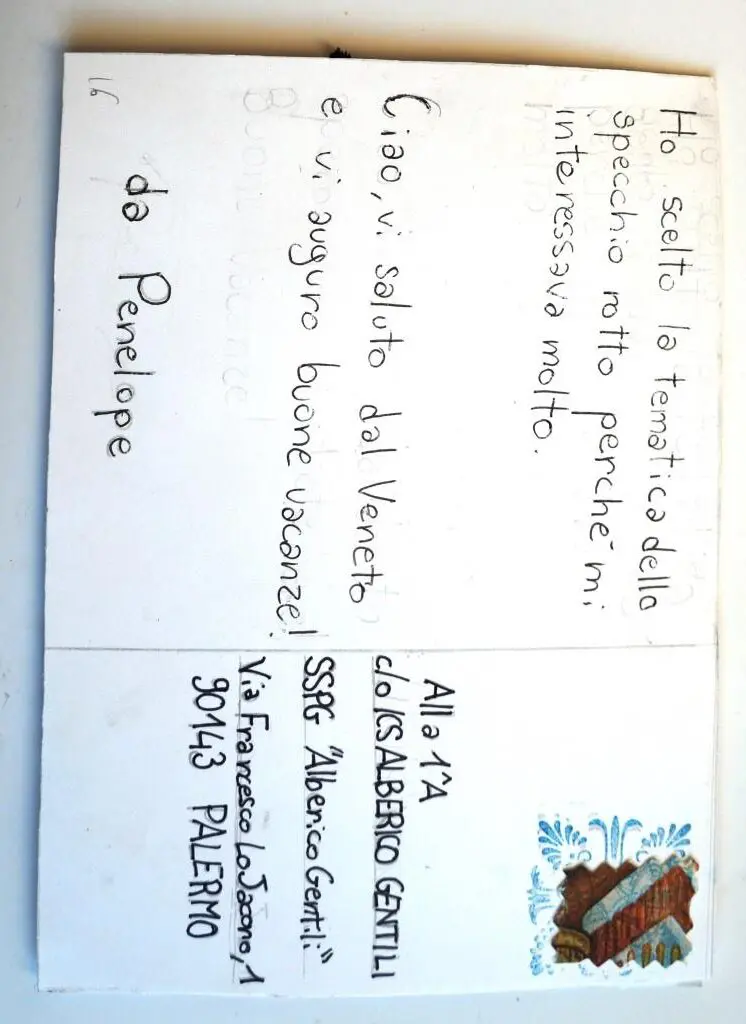 Ho scelto la tematica dello
specchio rotto perché mi
interessava molto.
Ciao, vi saluto dal Veneto
e vi auguro buone vacanze!
da Penelope
16
Alla 1^A
c/o ICS ALBERICO GENTILI
SSPG "Alberico Gentili"
Via Francesco Lo Jacono, 1
90143 PALERMO